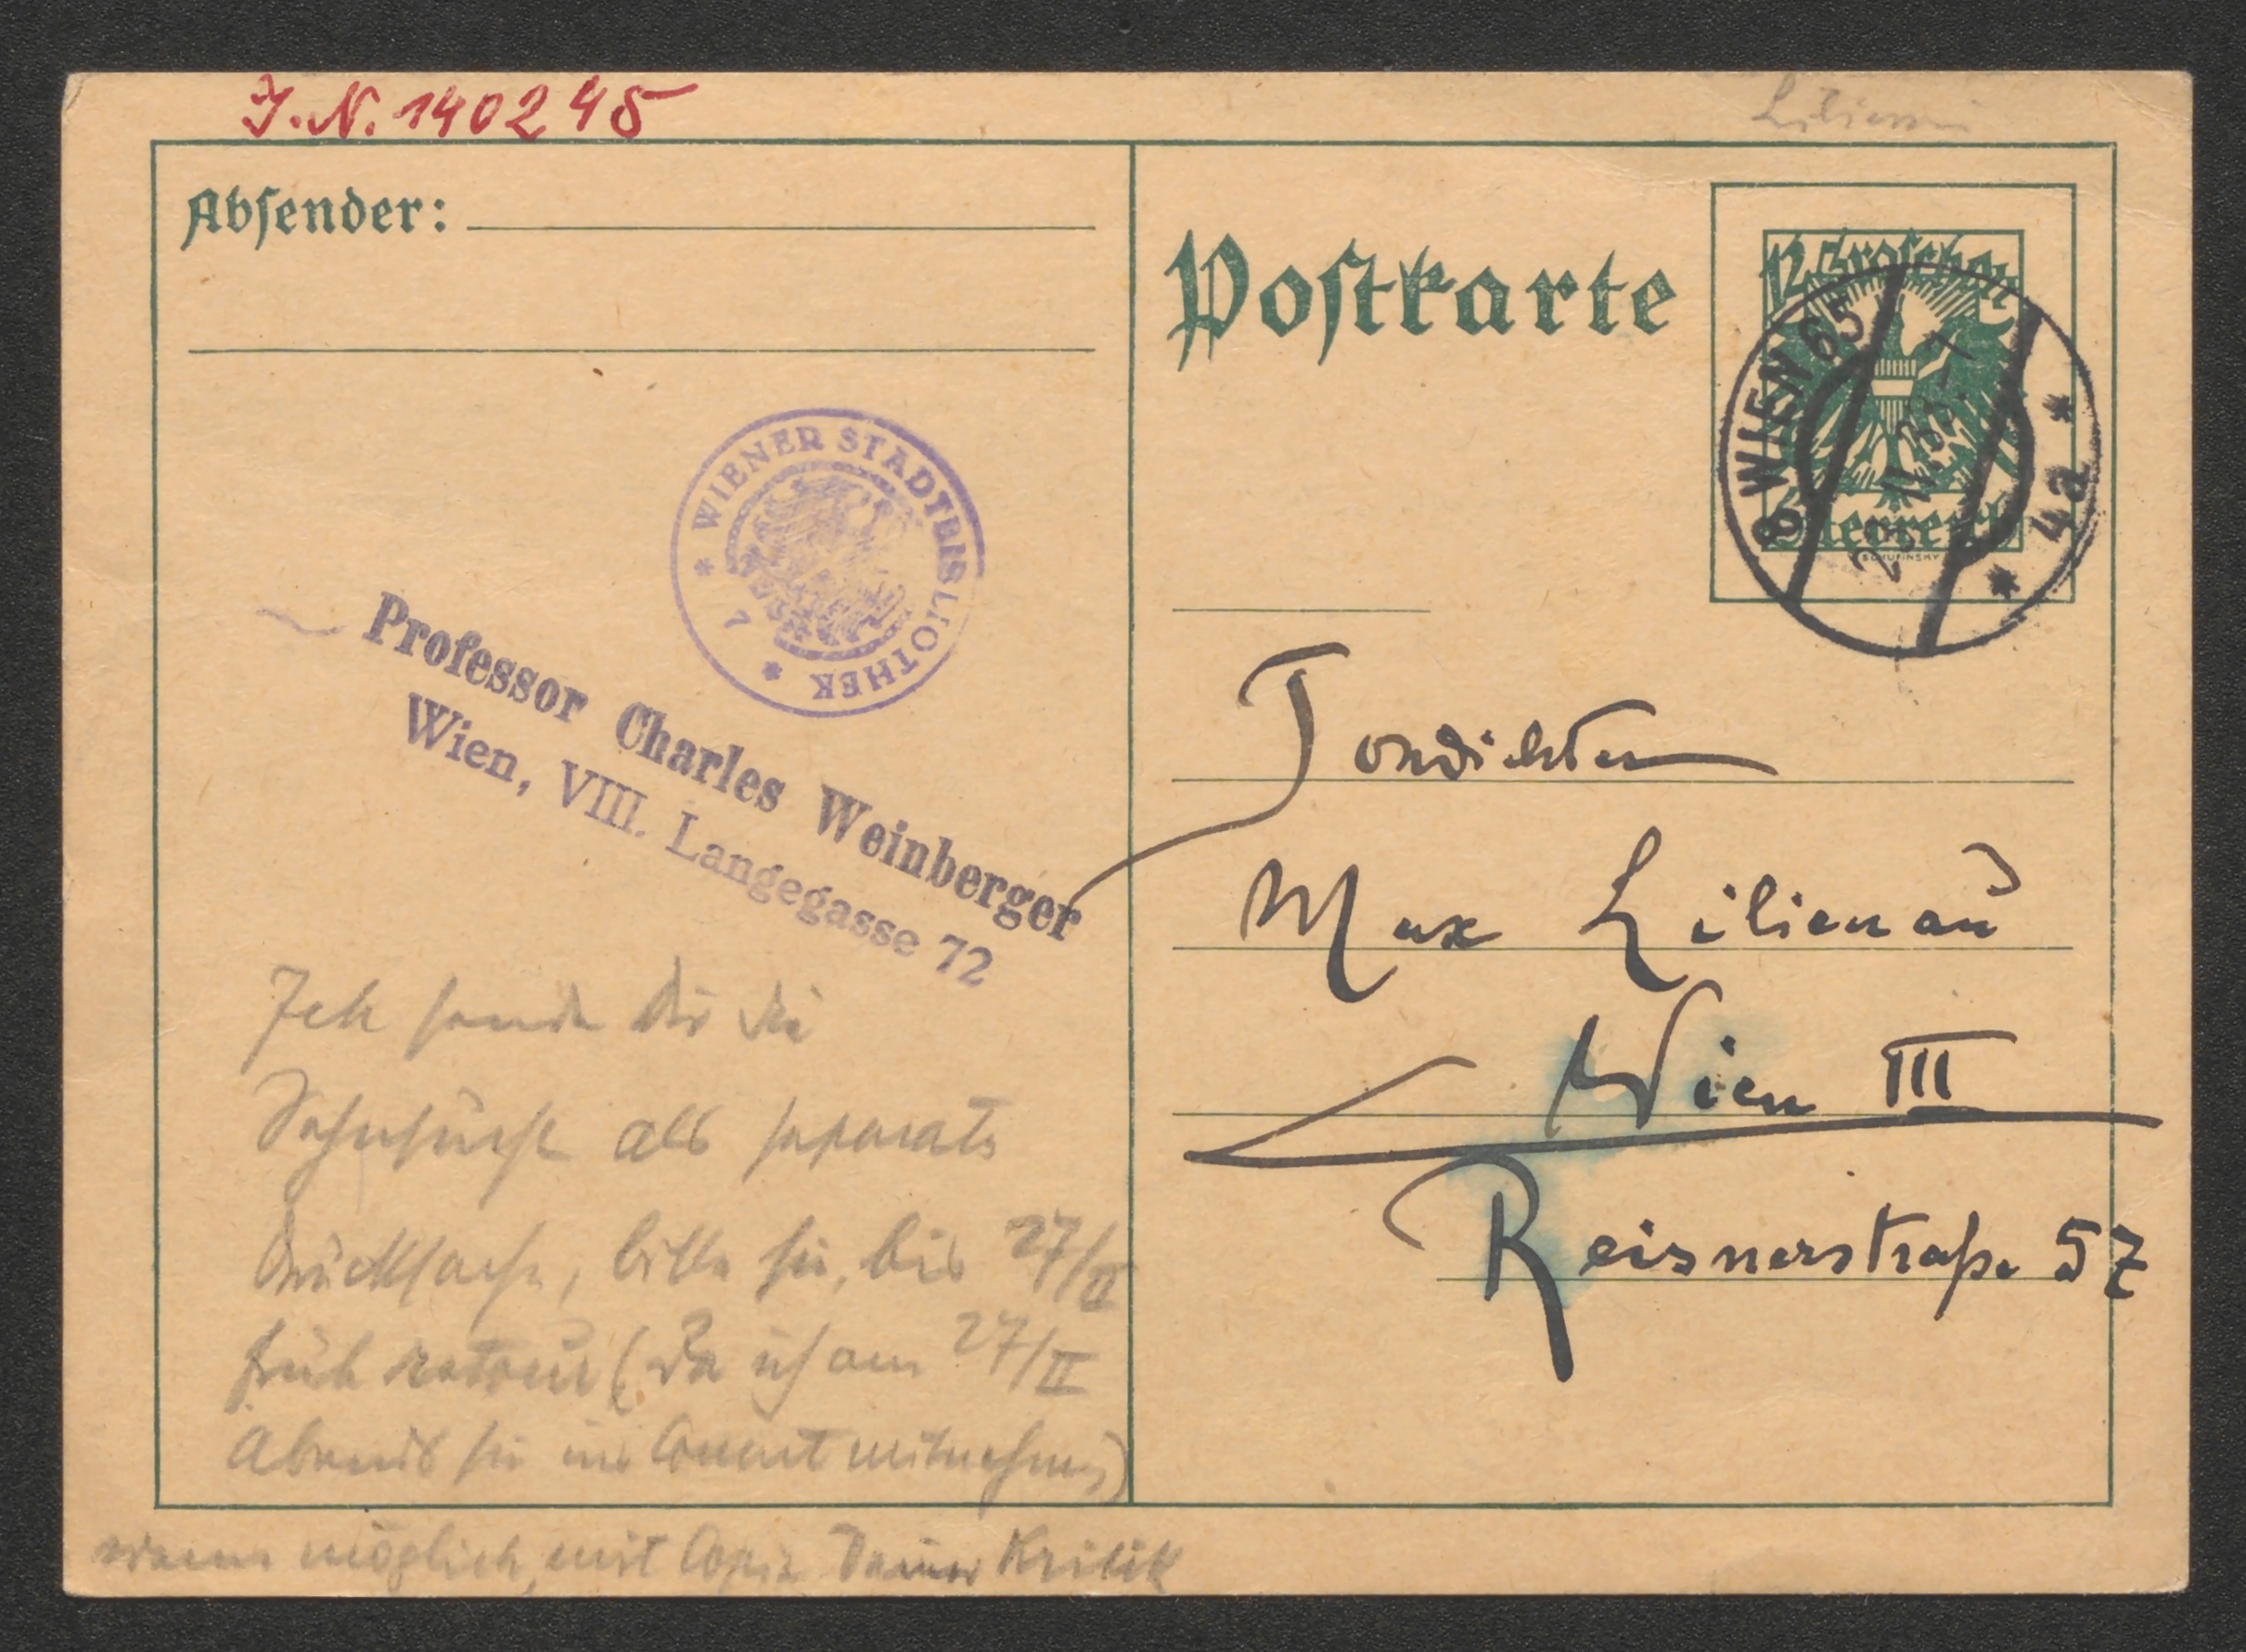 J. N. 140245
Absender:
Postkarte
12 Groschen
Österreich
SCHUFINSKY
8 WIEN 65
4a
WIENER STADTBIBLIOTHEK
7
Professor Charles Weinberger
Wien, VIII. Langegasse 72
Tondichter
Max Lilienau
Wien III
Reisnerstraße 57
Ich sende Dir die
als separate
Drucksache, bitte sie, bis 27/II
früh retour (da ich am 27/II
Abends sie ins Concert mitnehme)
wenn möglich, mit Copie Deiner Kritik